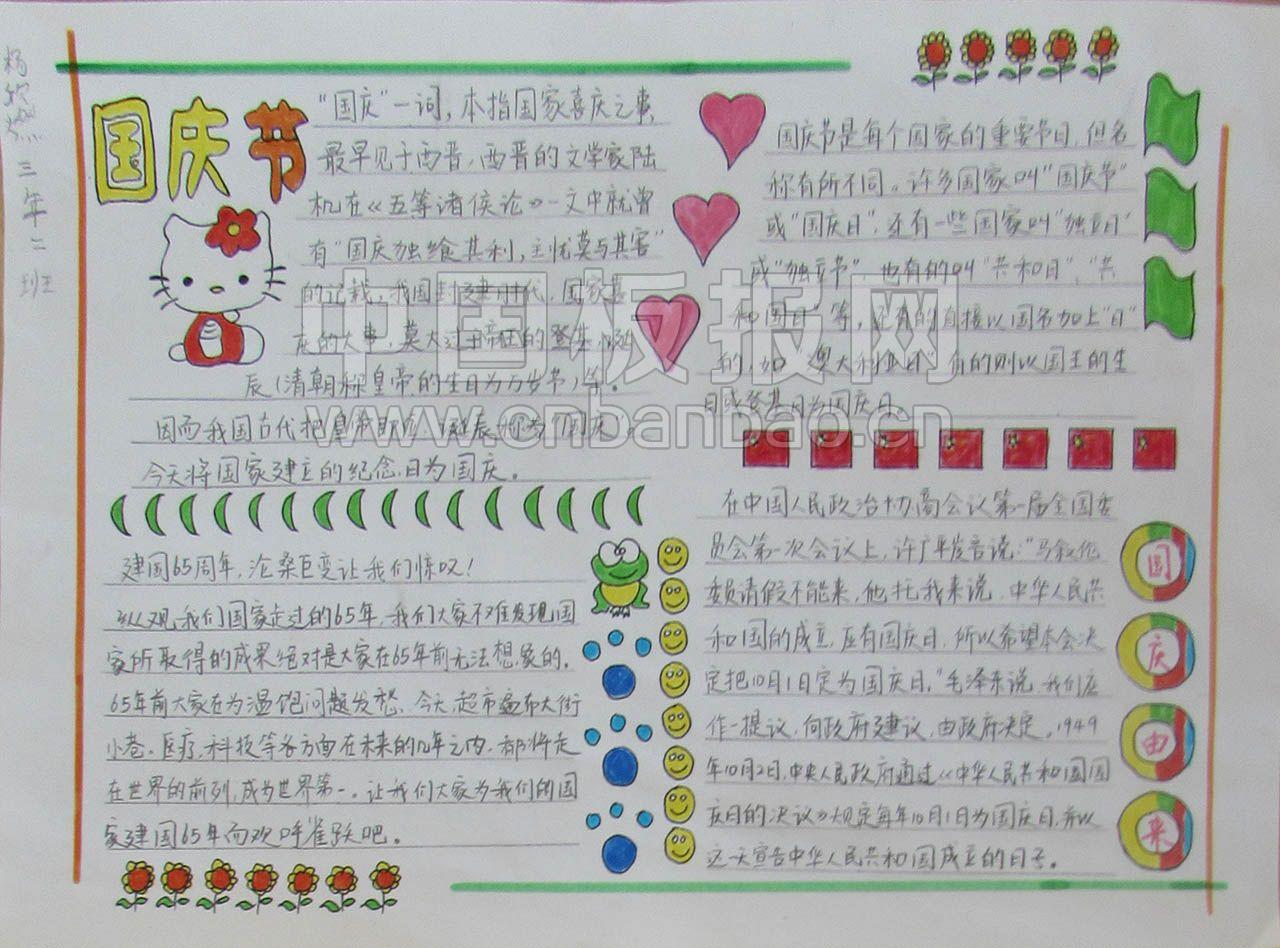 三年二班
国庆节
"国庆"一词,本指国家喜庆之事,
最早见于西晋,西晋的文学家陆
机在《五等诸侯论》一文中就曾
有"国庆独飨其利,主忧莫与其害"
的记载,我国封建时代,国家喜
庆的大事,莫大过于帝王的登基,诞
辰(清朝称皇帝的生日为万岁节)等。
因而我国古代把皇帝即位、诞辰称为"国庆"。
今天将国家建立的纪念日为国庆。
国庆节是每个国家的重要节日,但名
称有所不同。许多国家叫"国庆节"
或"国庆日",还有一些国家叫"独立日"
或"独立节",也有的叫"共和日"、"共
和国日"等,还有的直接以国名加上"日"
的,如"澳大利亚日",有的则以国王的生
日或登基日为国庆日。
建国65周年,沧桑巨变让我们惊叹!
纵观我们国家走过的65年,我们大家不难发现国
家所取得的成果绝对是大家在65年前无法想象的。
65年前大家在为温饱问题发愁、今天,超市遍布大街
小巷。医疗,科技等各方面在未来的几年之内,都将走
在世界的前列,成为世界第一。让我们大家为我们的国
家建国65年而欢呼雀跃吧。
在中国人民政治协商会议第一届全国委
员会第一次会议上,许广平发言说:"马叙伦
委员请假不能来,他托我来说,中华人民共
和国的成立,应有国庆日,所以希望本会决
定把10月1日定为国庆日。"毛泽东说,我们应
作一提议,向政府建议,由政府决定。1949
年10月2日,中央人民政府通过《中华人民共和国国
庆日的决议》规定每年10月1日为国庆日,并以
这一天宣告中华人民共和国成立的日子。
国
庆
由
来
中国板报网
www.cnbanbao.cn